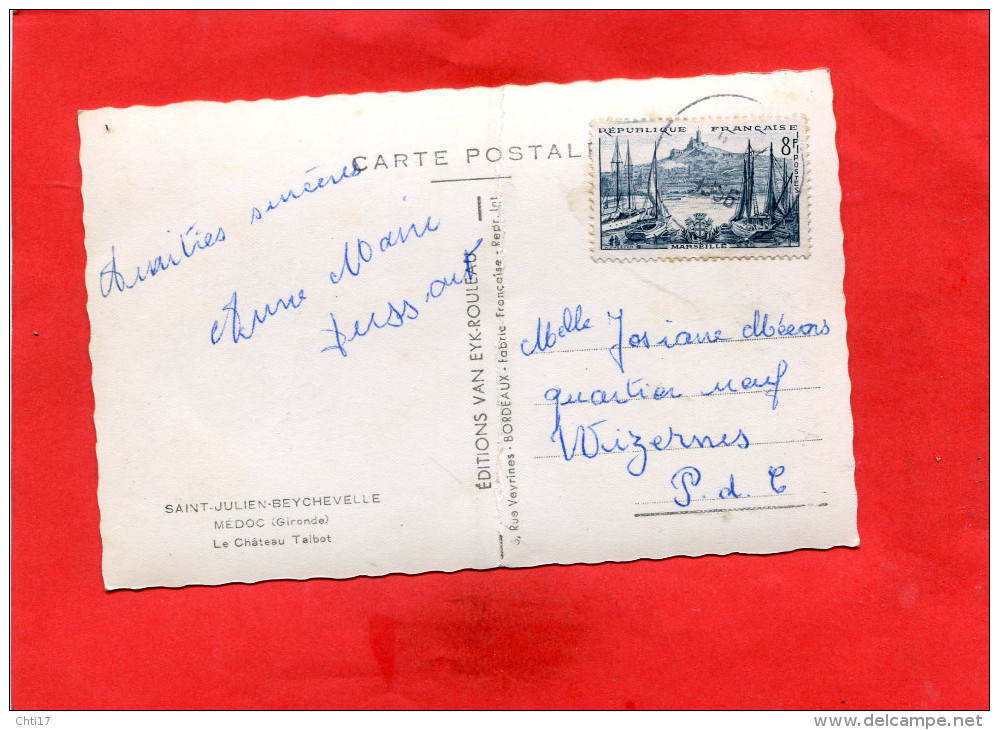 CARTE POSTAL
Amitiés sincères
Anne Marie
RÉPUBLIQUE FRANÇAISE
8F
POSTES
MARSEILLE
ÉDITIONS VAN EYK-ROULEAU
, Rue Veyrines - BORDEAUX - Fabric. Française - Repr. Int.
Melle Josiane
quartier neuf
Wizernes
P. d. C
SAINT-JULIEN-BEYCHEVELLE
MÉDOC (Gironde)
Le Château Talbot
Chti17
www.delcampe.net